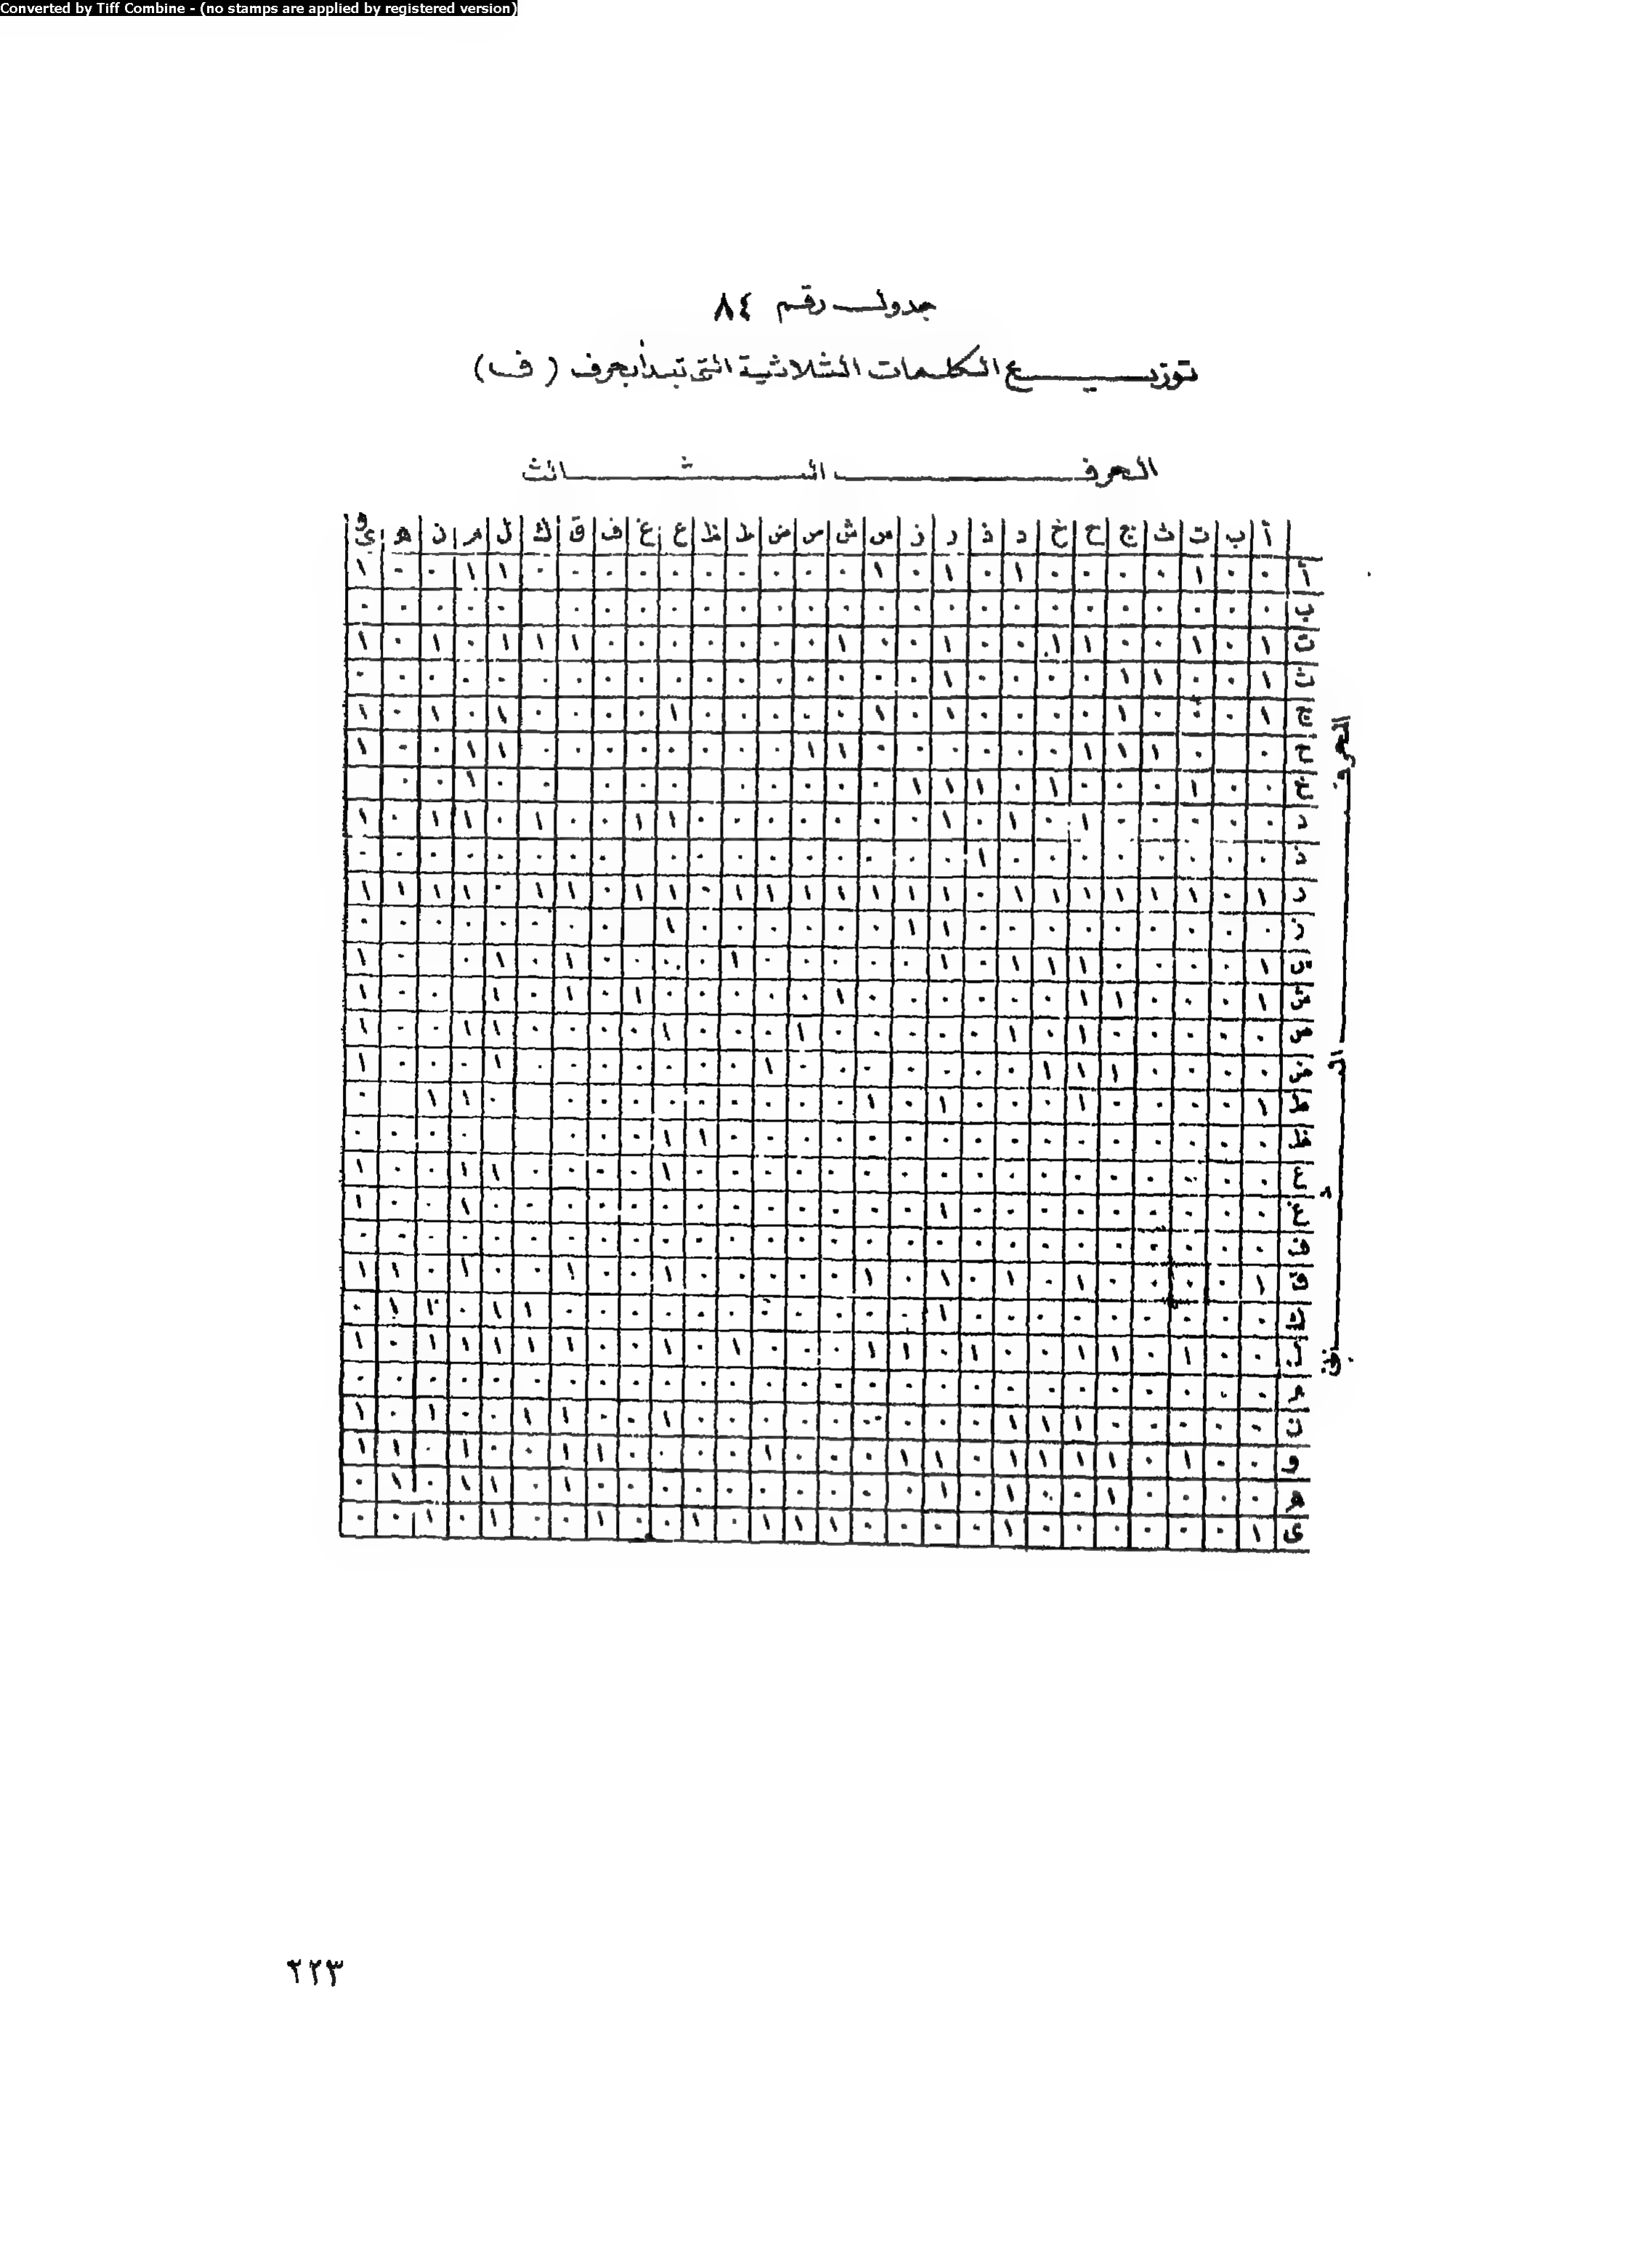 Converted by Tiff Combine - (no stamps are applied by registered version)
جدول رقم ٨٤
توزيع الكلمات الثلاثية التى تبدأ بحرف (ف)
الحرف الثالث
أ ب ت ث ج ح خ د ذ ر ز س ش ص ض ط ظ ع غ ف ق ك ل م ن ه و ي
أ ٠ ٠ ١ ٠ ٠ ٠ ٠ ١ ٠ ١ ٠ ١ ٠ ٠ ٠ ٠ ٠ ٠ ٠ ٠ ٠ ٠ ١ ١ ٠ ٠ ١
ب ٠ ٠ ٠ ٠ ٠ ٠ ٠ ٠ ٠ ٠ ٠ ٠ ٠ ٠ ٠ ٠ ٠ ٠ ٠ ٠ ٠ ٠ ٠ ٠ ٠ ٠
ت ١ ٠ ١ ٠ ٠ ١ ١ ٠ ٠ ١ ٠ ٠ ١ ٠ ٠ ٠ ٠ ٠ ٠ ٠ ١ ١ ١ ٠ ١ ٠ ١
ث ١ ٠ ٠ ١ ١ ٠ ٠ ٠ ٠ ١ ٠ ٠ ٠ ٠ ٠ ٠ ٠ ٠ ٠ ٠ ٠ ٠ ٠ ٠ ٠ ٠ ٠
ج ١ ٠ ٠ ٠ ١ ٠ ٠ ٠ ٠ ١ ٠ ١ ٠ ٠ ٠ ٠ ٠ ١ ٠ ٠ ٠ ٠ ١ ٠ ١ ٠ ١
ح ٠ ٠ ١ ١ ١ ٠ ٠ ٠ ٠ ٠ ٠ ١ ١ ٠ ٠ ٠ ٠ ٠ ٠ ٠ ٠ ١ ١ ٠ ٠ ١
خ ٠ ٠ ١ ٠ ٠ ٠ ١ ٠ ١ ١ ١ ٠ ٠ ٠ ٠ ٠ ٠ ٠ ٠ ٠ ٠ ١ ٠ ٠
د ٠ ٠ ٠ ٠ ٠ ١ ٠ ١ ٠ ١ ٠ ٠ ٠ ٠ ٠ ٠ ٠ ١ ١ ٠ ٠ ١ ٠ ١ ١ ٠ ١
ذ ٠ ٠ ٠ ٠ ٠ ٠ ٠ ٠ ١ ٠ ٠ ٠ ٠ ٠ ٠ ٠ ٠ ٠ ٠ ٠ ٠ ٠ ٠ ٠ ٠ ٠
ر ١ ٠ ١ ١ ١ ١ ١ ١ ٠ ١ ١ ١ ١ ١ ١ ١ ٠ ١ ١ ٠ ١ ١ ٠ ١ ١ ١ ١
ز ٠ ٠ ٠ ٠ ٠ ٠ ٠ ٠ ٠ ١ ١ ٠ ٠ ٠ ٠ ٠ ٠ ١ ٠ ٠ ٠ ٠ ٠ ٠ ٠ ٠
س ١ ٠ ٠ ٠ ٠ ١ ١ ١ ٠ ١ ٠ ٠ ٠ ٠ ٠ ١ ٠ ٠ ٠ ٠ ١ ٠ ١ ٠ ٠ ١
ش ١ ٠ ٠ ٠ ١ ١ ٠ ٠ ٠ ٠ ٠ ٠ ١ ٠ ٠ ٠ ٠ ٠ ١ ٠ ١ ٠ ١ ٠ ٠ ١
ص ٠ ٠ ٠ ٠ ٠ ١ ٠ ١ ٠ ٠ ٠ ٠ ٠ ١ ٠ ٠ ٠ ١ ٠ ٠ ٠ ٠ ١ ١ ٠ ٠ ١
ض ٠ ٠ ٠ ٠ ١ ١ ١ ٠ ٠ ٠ ٠ ٠ ٠ ٠ ١ ٠ ٠ ٠ ٠ ٠ ٠ ٠ ١ ٠ ٠ ٠ ١
ط ١ ٠ ٠ ٠ ٠ ١ ٠ ٠ ٠ ١ ٠ ١ ٠ ٠ ٠ ٠ ٠ ٠ ٠ ٠ ٠ ٠ ١ ١ ٠
ظ ٠ ٠ ٠ ٠ ٠ ٠ ٠ ٠ ٠ ٠ ٠ ٠ ٠ ٠ ٠ ٠ ١ ١ ٠ ٠ ٠ ٠ ٠ ٠ ٠
ع ٠ ٠ ٠ ٠ ٠ ٠ ٠ ٠ ٠ ٠ ٠ ٠ ٠ ٠ ٠ ٠ ٠ ١ ٠ ٠ ٠ ٠ ١ ١ ٠ ٠ ١
غ ٠ ٠ ٠ ٠ ٠ ٠ ٠ ٠ ٠ ١ ٠ ٠ ٠ ٠ ٠ ٠ ٠ ٠ ٠ ٠ ٠ ٠ ٠ ١ ٠ ٠ ١
ف ٠ ٠ ٠ ٠ ٠ ٠ ٠ ٠ ٠ ٠ ٠ ٠ ٠ ٠ ٠ ٠ ٠ ٠ ٠ ٠ ٠ ٠ ٠ ٠ ٠ ٠ ٠
ق ١ ٠ ٠ ٠ ٠ ١ ٠ ١ ٠ ١ ٠ ١ ٠ ٠ ٠ ٠ ٠ ١ ٠ ٠ ١ ٠ ٠ ١ ٠ ١ ١
ك ٠ ٠ ٠ ٠ ٠ ٠ ٠ ٠ ٠ ١ ٠ ٠ ٠ ٠ ٠ ٠ ٠ ٠ ٠ ٠ ٠ ١ ١ ٠ ١ ١ ٠
ل ٠ ٠ ١ ٠ ١ ١ ٠ ٠ ١ ٠ ١ ١ ٠ ٠ ٠ ١ ٠ ١ ٠ ٠ ١ ١ ١ ١ ١ ٠ ١
م ٠ ٠ ٠ ٠ ٠ ٠ ٠ ٠ ٠ ٠ ٠ ٠ ٠ ٠ ٠ ٠ ٠ ٠ ٠ ٠ ٠ ٠ ٠ ٠ ٠ ٠ ٠
ن ٠ ٠ ٠ ٠ ٠ ١ ١ ١ ٠ ٠ ٠ ٠ ٠ ٠ ٠ ٠ ٠ ١ ٠ ٠ ١ ١ ٠ ٠ ١ ٠ ١
و ٠ ٠ ١ ٠ ١ ١ ١ ١ ٠ ١ ١ ٠ ٠ ٠ ١ ٠ ٠ ٠ ٠ ١ ١ ٠ ٠ ١ ٠ ١ ١
ه ٠ ٠ ٠ ٠ ١ ٠ ٠ ١ ٠ ١ ٠ ٠ ٠ ٠ ٠ ٠ ٠ ٠ ٠ ٠ ١ ٠ ١ ١ ٠ ١ ٠
ي ١ ٠ ٠ ٠ ٠ ٠ ٠ ١ ٠ ٠ ٠ ٠ ١ ١ ١ ٠ ١ ٠ ٠ ١ ٠ ٠ ١ ٠ ١ ٠ ٠
الحرف الثانى
٢٢٣